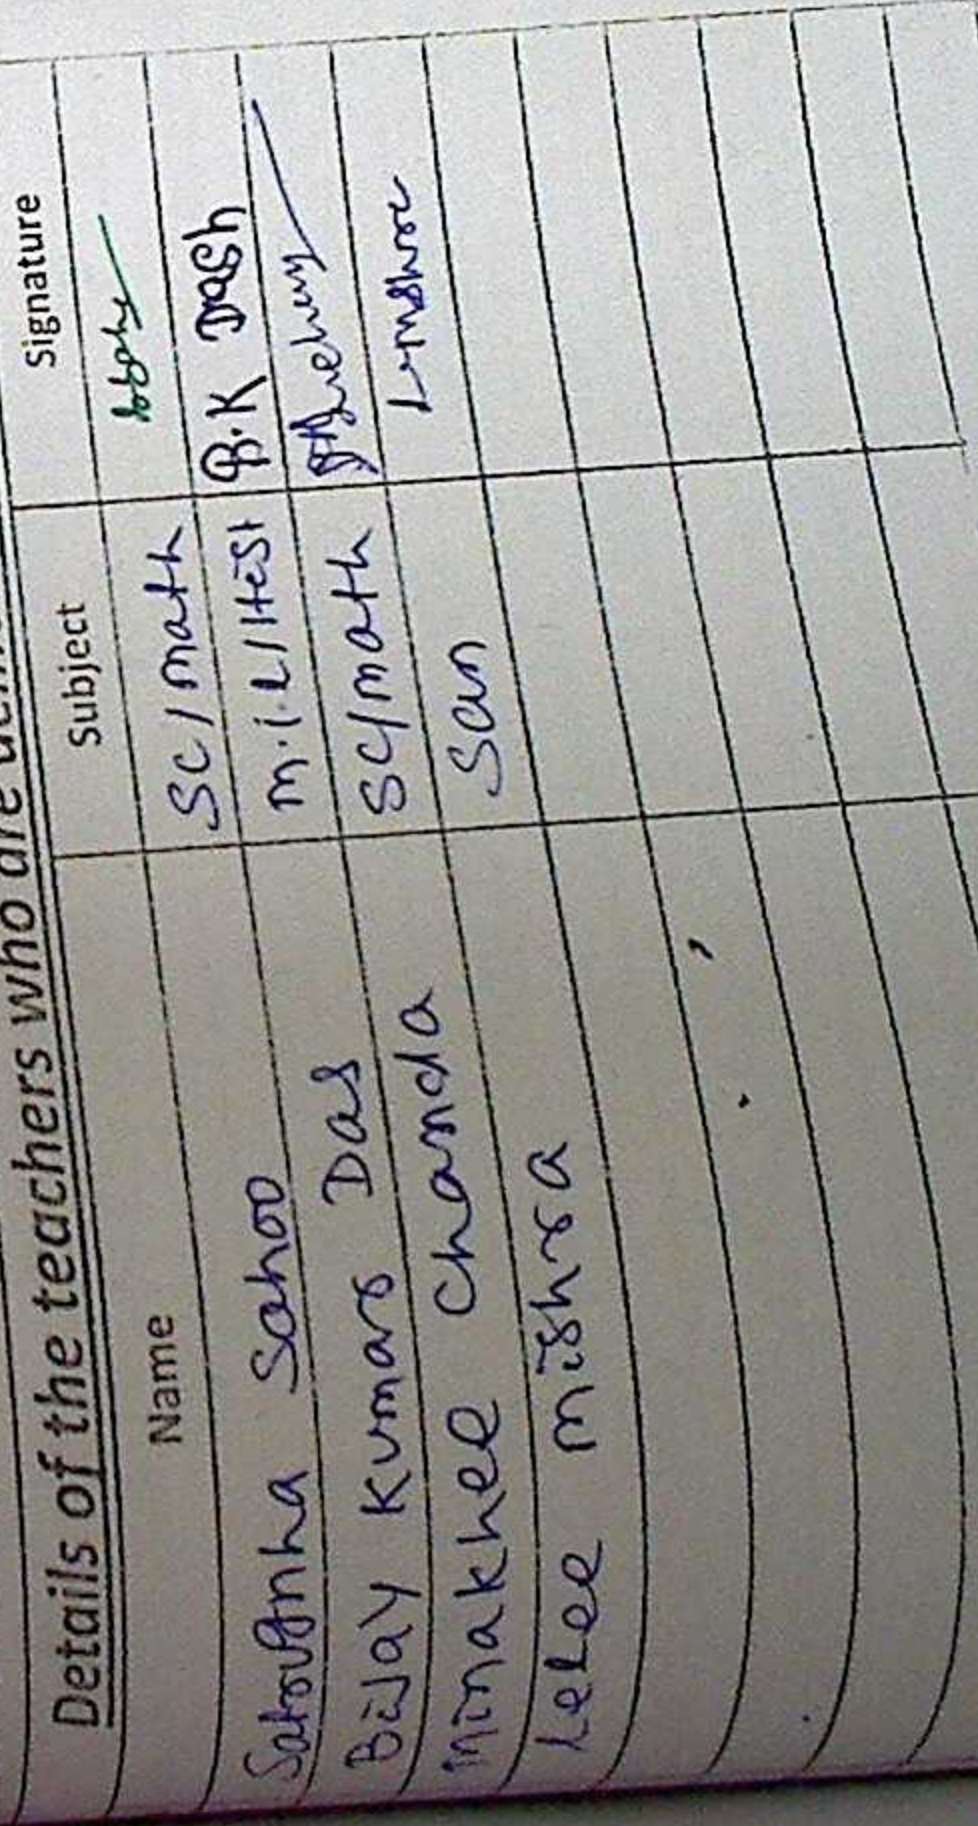 Details of the teachers who are
Name Subject Signature
Satrughnha Sahoo SC/math
Bijay Kumar Das m.i.L/Hist B.K Dash
Minakhee Chanda SC/math
Lelee mishra San